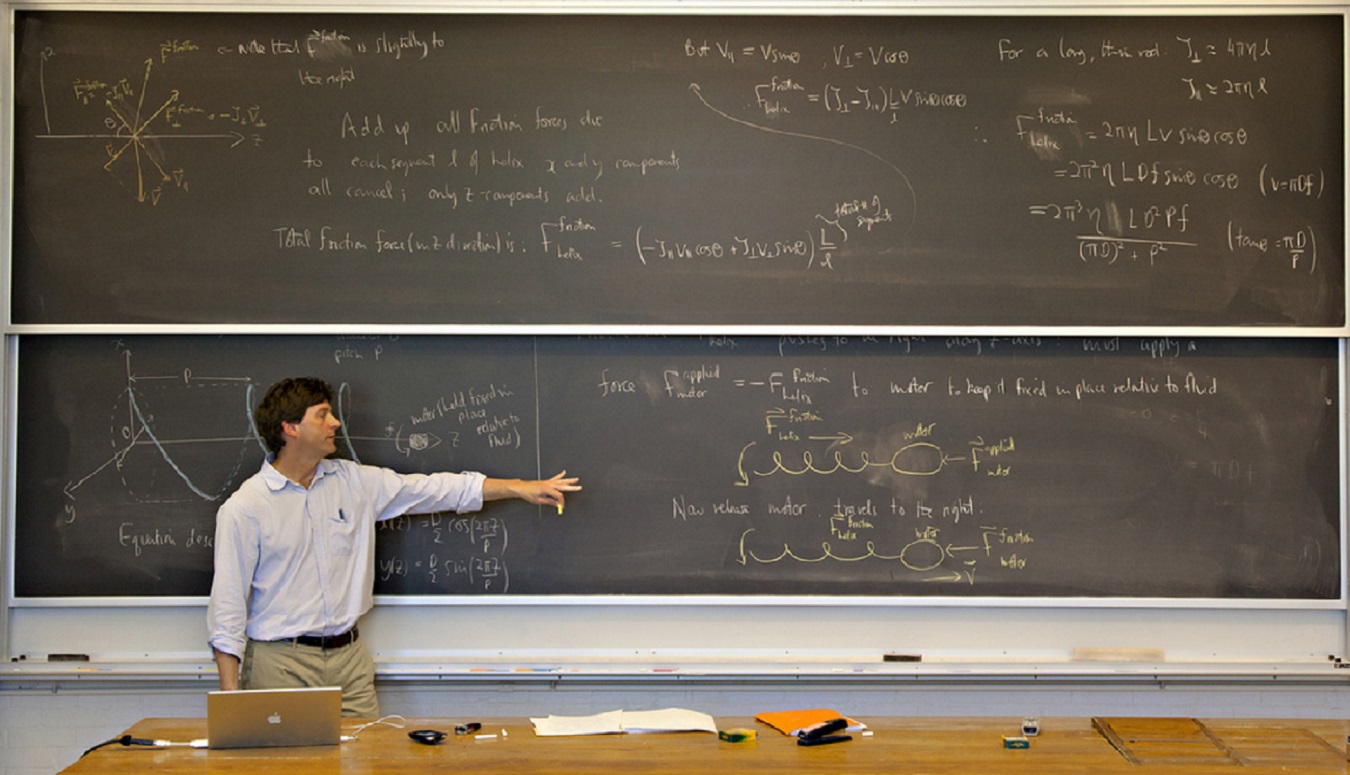 F friction ← note that F friction is slightly to
the right
F∥ friction = -ζ∥ V∥
F⊥ friction = -ζ⊥ V⊥
θ
z
V⊥ V∥
V
Add up all friction forces due
to each segment l of helix x and y components
all cancel; only z-components add.
Total friction force (in z direction) is: F friction helix = (-ζ∥ V∥ cosθ + ζ⊥ V⊥ sinθ) L/l
total # of
segments
But V∥ = V sinθ , V⊥ = V cosθ
∴ F friction helix = (ζ⊥ - ζ∥) L/l V sinθ cosθ
For a long, thin rod: ζ⊥ ≈ 4πη l
ζ∥ ≈ 2πη l
∴ F friction helix = 2πη LV sinθ cosθ
= 2π²η LDf sinθ cosθ (V=πDf)
= 2π³η L D² P f / ((πD)² + P²) (tanθ = πD/P)
pitch P
x
P
O
y
z
motor (held fixed in
place
relative to
fluid)
Equation desc
x(z) = D/2 cos(2πz/P)
y(z) = D/2 sin(2πz/P)
helix pushes to the right along z-axis: must apply a
force F applied motor = -F friction helix to motor to keep it fixed in place relative to fluid
F friction helix → motor ← F applied motor
Now release motor. travels to the right.
F friction helix motor ← F friction motor
→ V